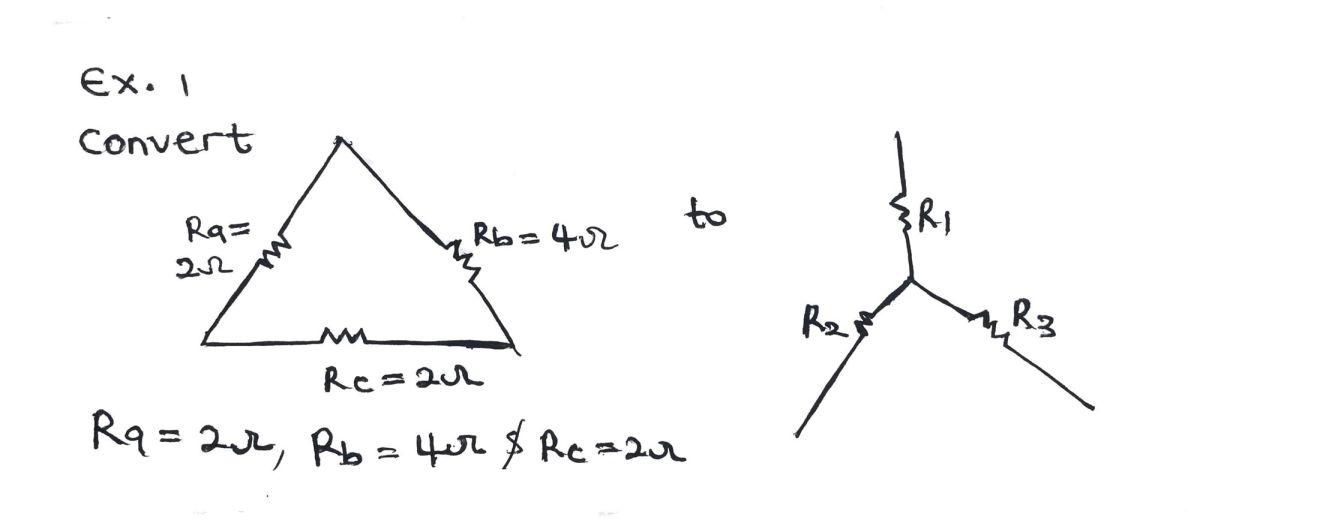 Ex. 1
Convert
Ra=
2Ω
Rb = 4Ω
Rc = 2Ω
to
R1
R2
R3
Ra = 2Ω, Rb = 4Ω & Rc = 2Ω